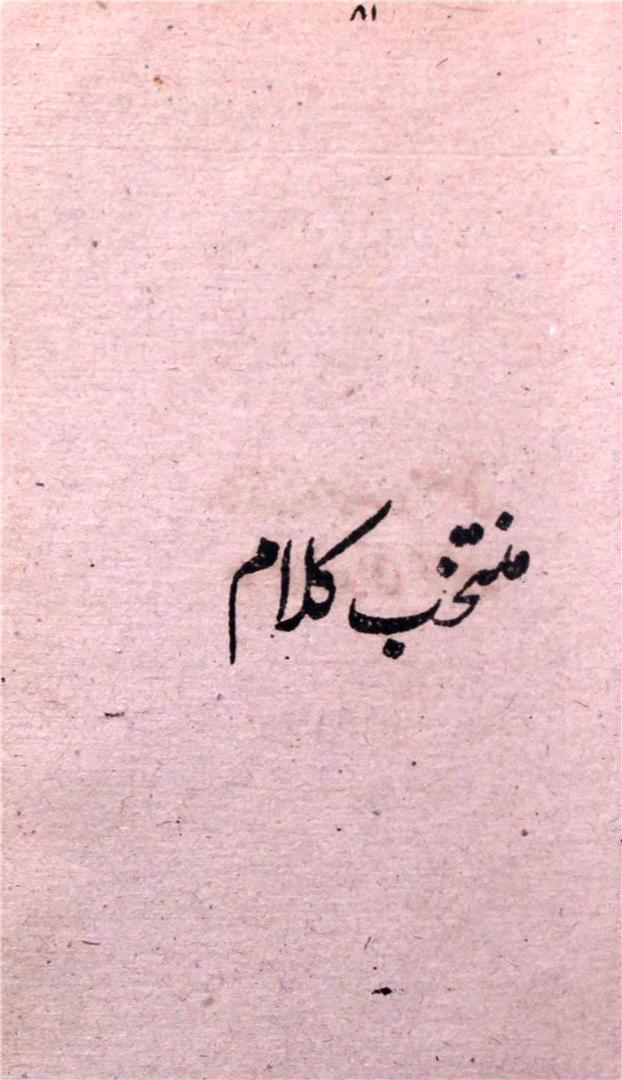 ۸۱
منتخب کلام